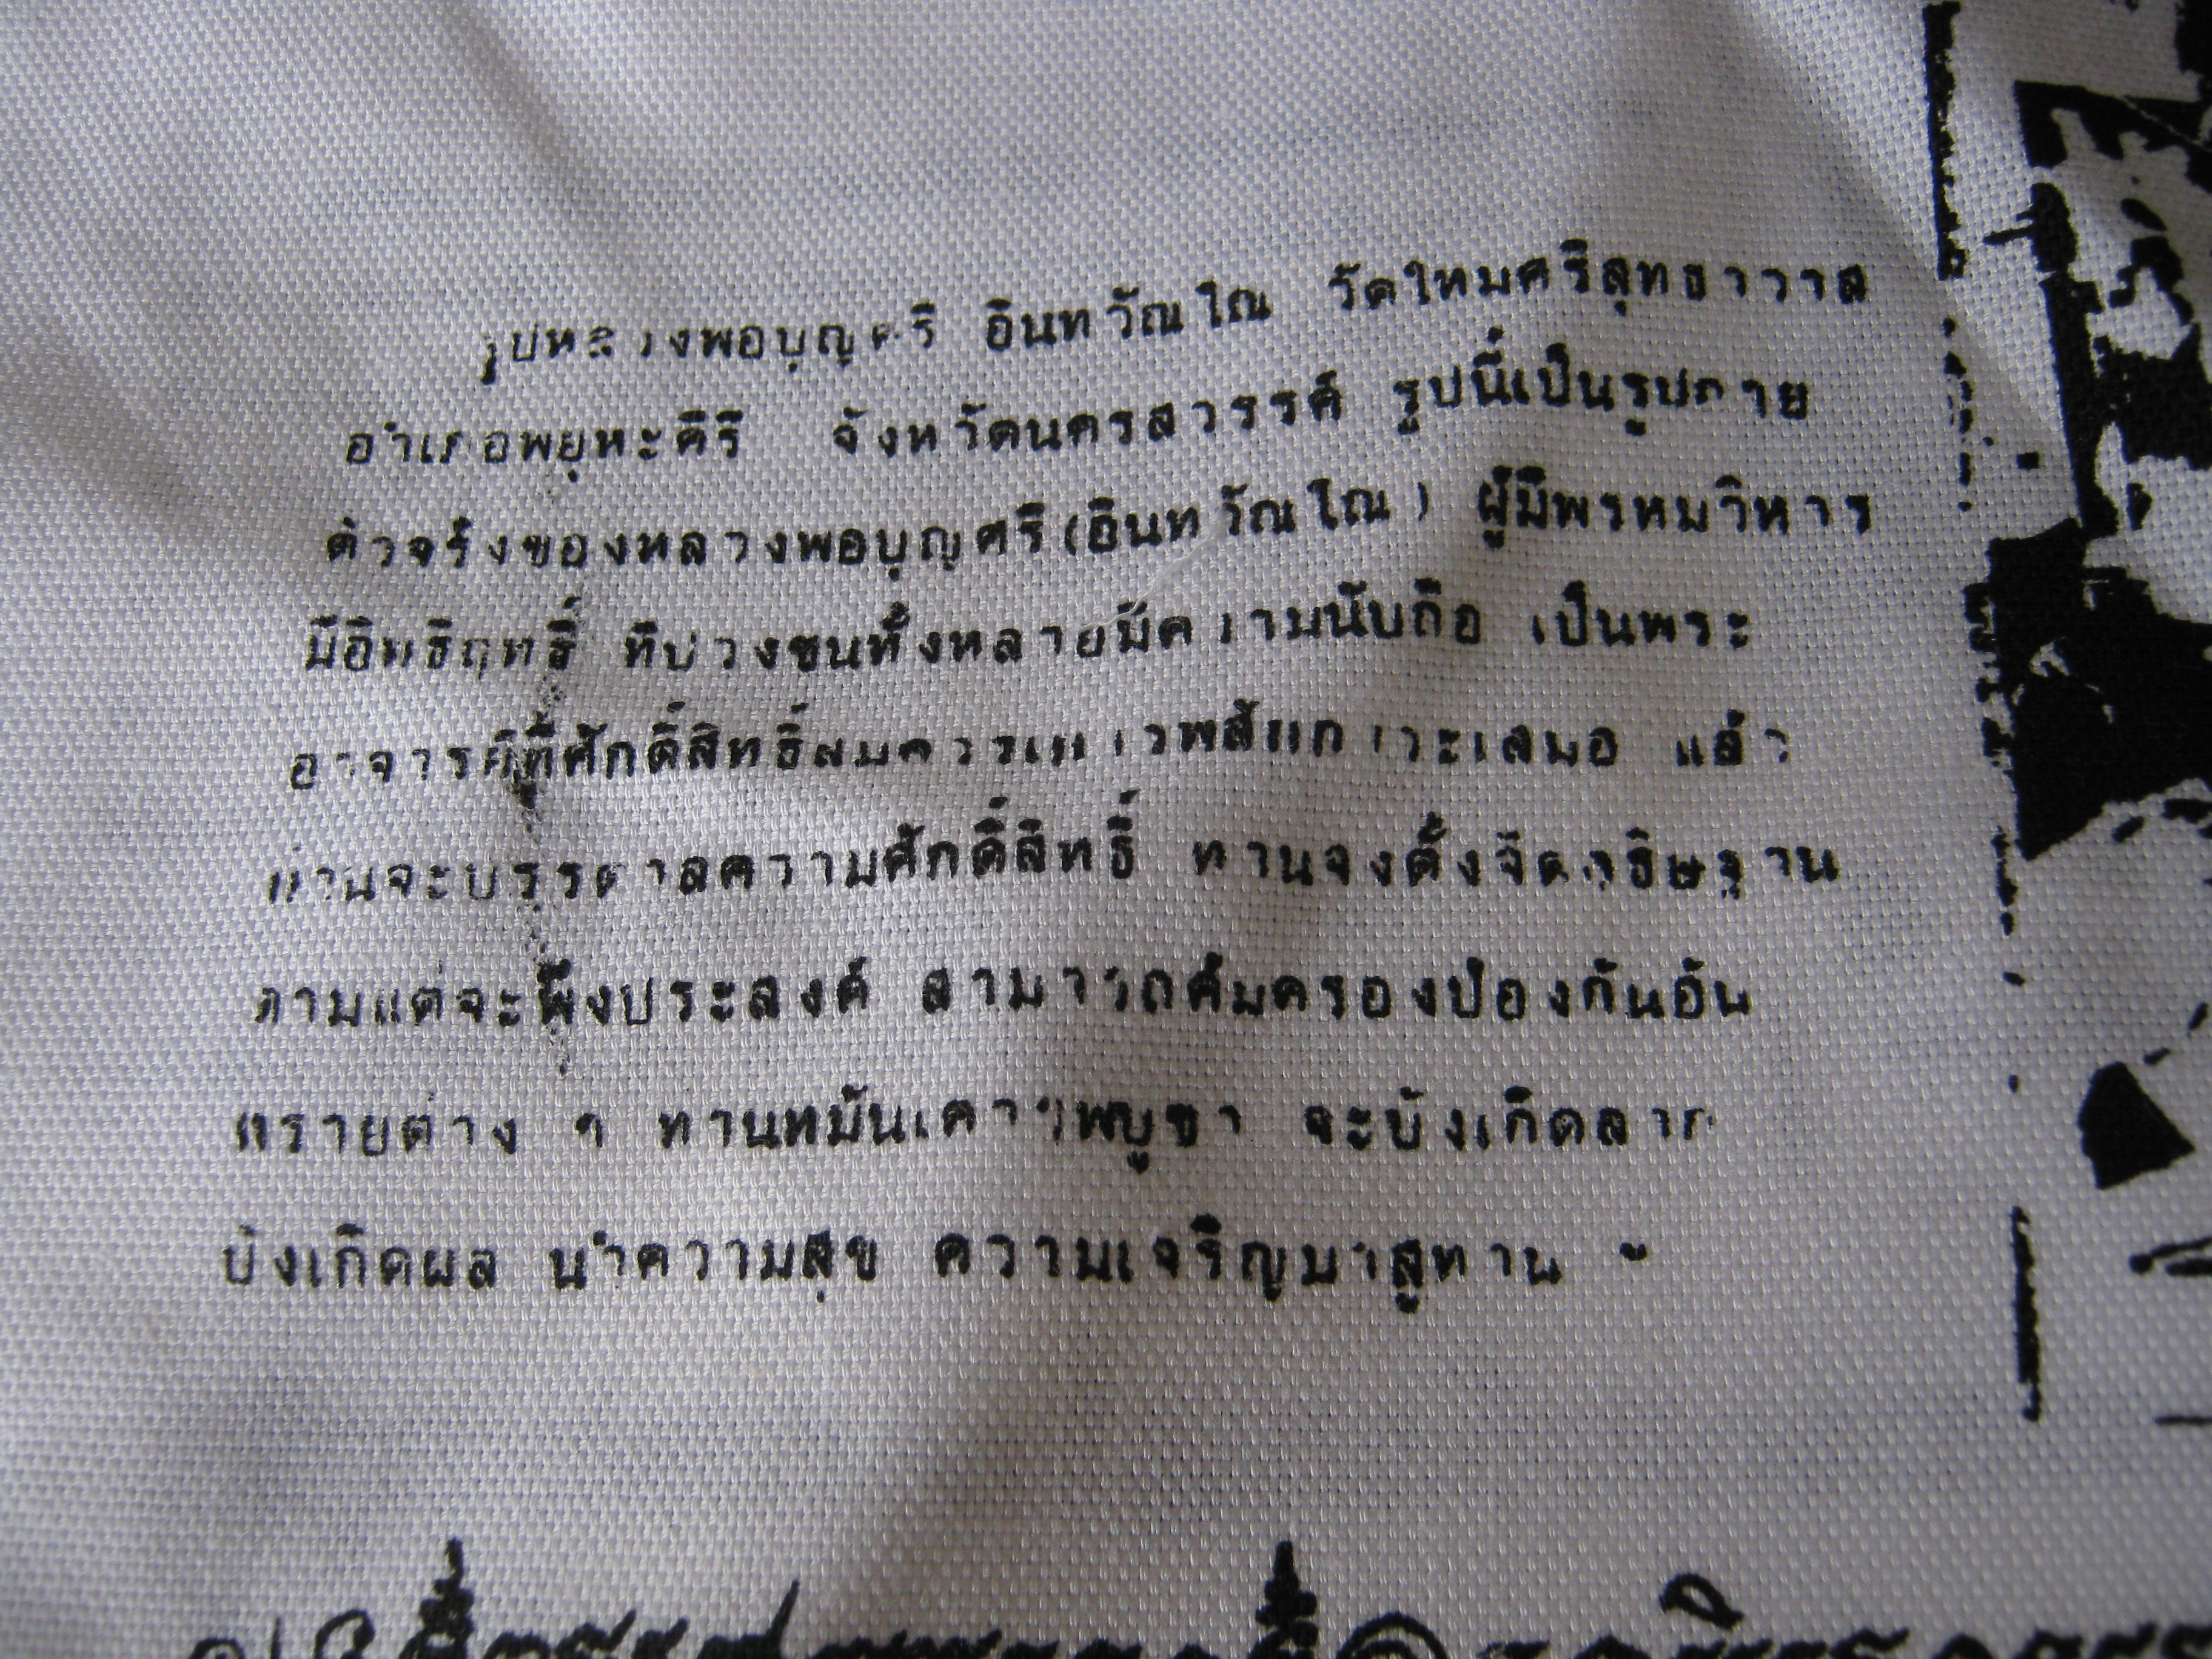 รูปหลวงพอบุญศรี อินทวัณโณ วัดใหมศรีสุทธาวาส
อำเภอพยุหะคิรี จังหวัดนครสวรรค์ รูปนี้เป็นรูปถาย
ตัวจริงของหลวงพอบุญศรี(อินทวัณโณ) ผู้มีพรหมวิหาร
มีอิทธิฤทธิ์ ที่ปวงชนทั้งหลายมีความนับถือ เป็นพระ
อาจารย์ที่ศักดิ์สิทธิ์สมควรเคารพสักการะเสมอ แล้ว
ทานจะบรรดาลความศักดิ์สิทธิ์ ทานจงตั้งจิตอธิษฐาน
ตามแต่จะพึงประสงค์ สามารถคุ้มครองป้องกันอัน
ตรายต่าง ๆ ทานหมั่นเคารพบูชา จะบังเกิดลาภ
บังเกิดผล นำความสุข ความเจริญมาสูทาน ฯ